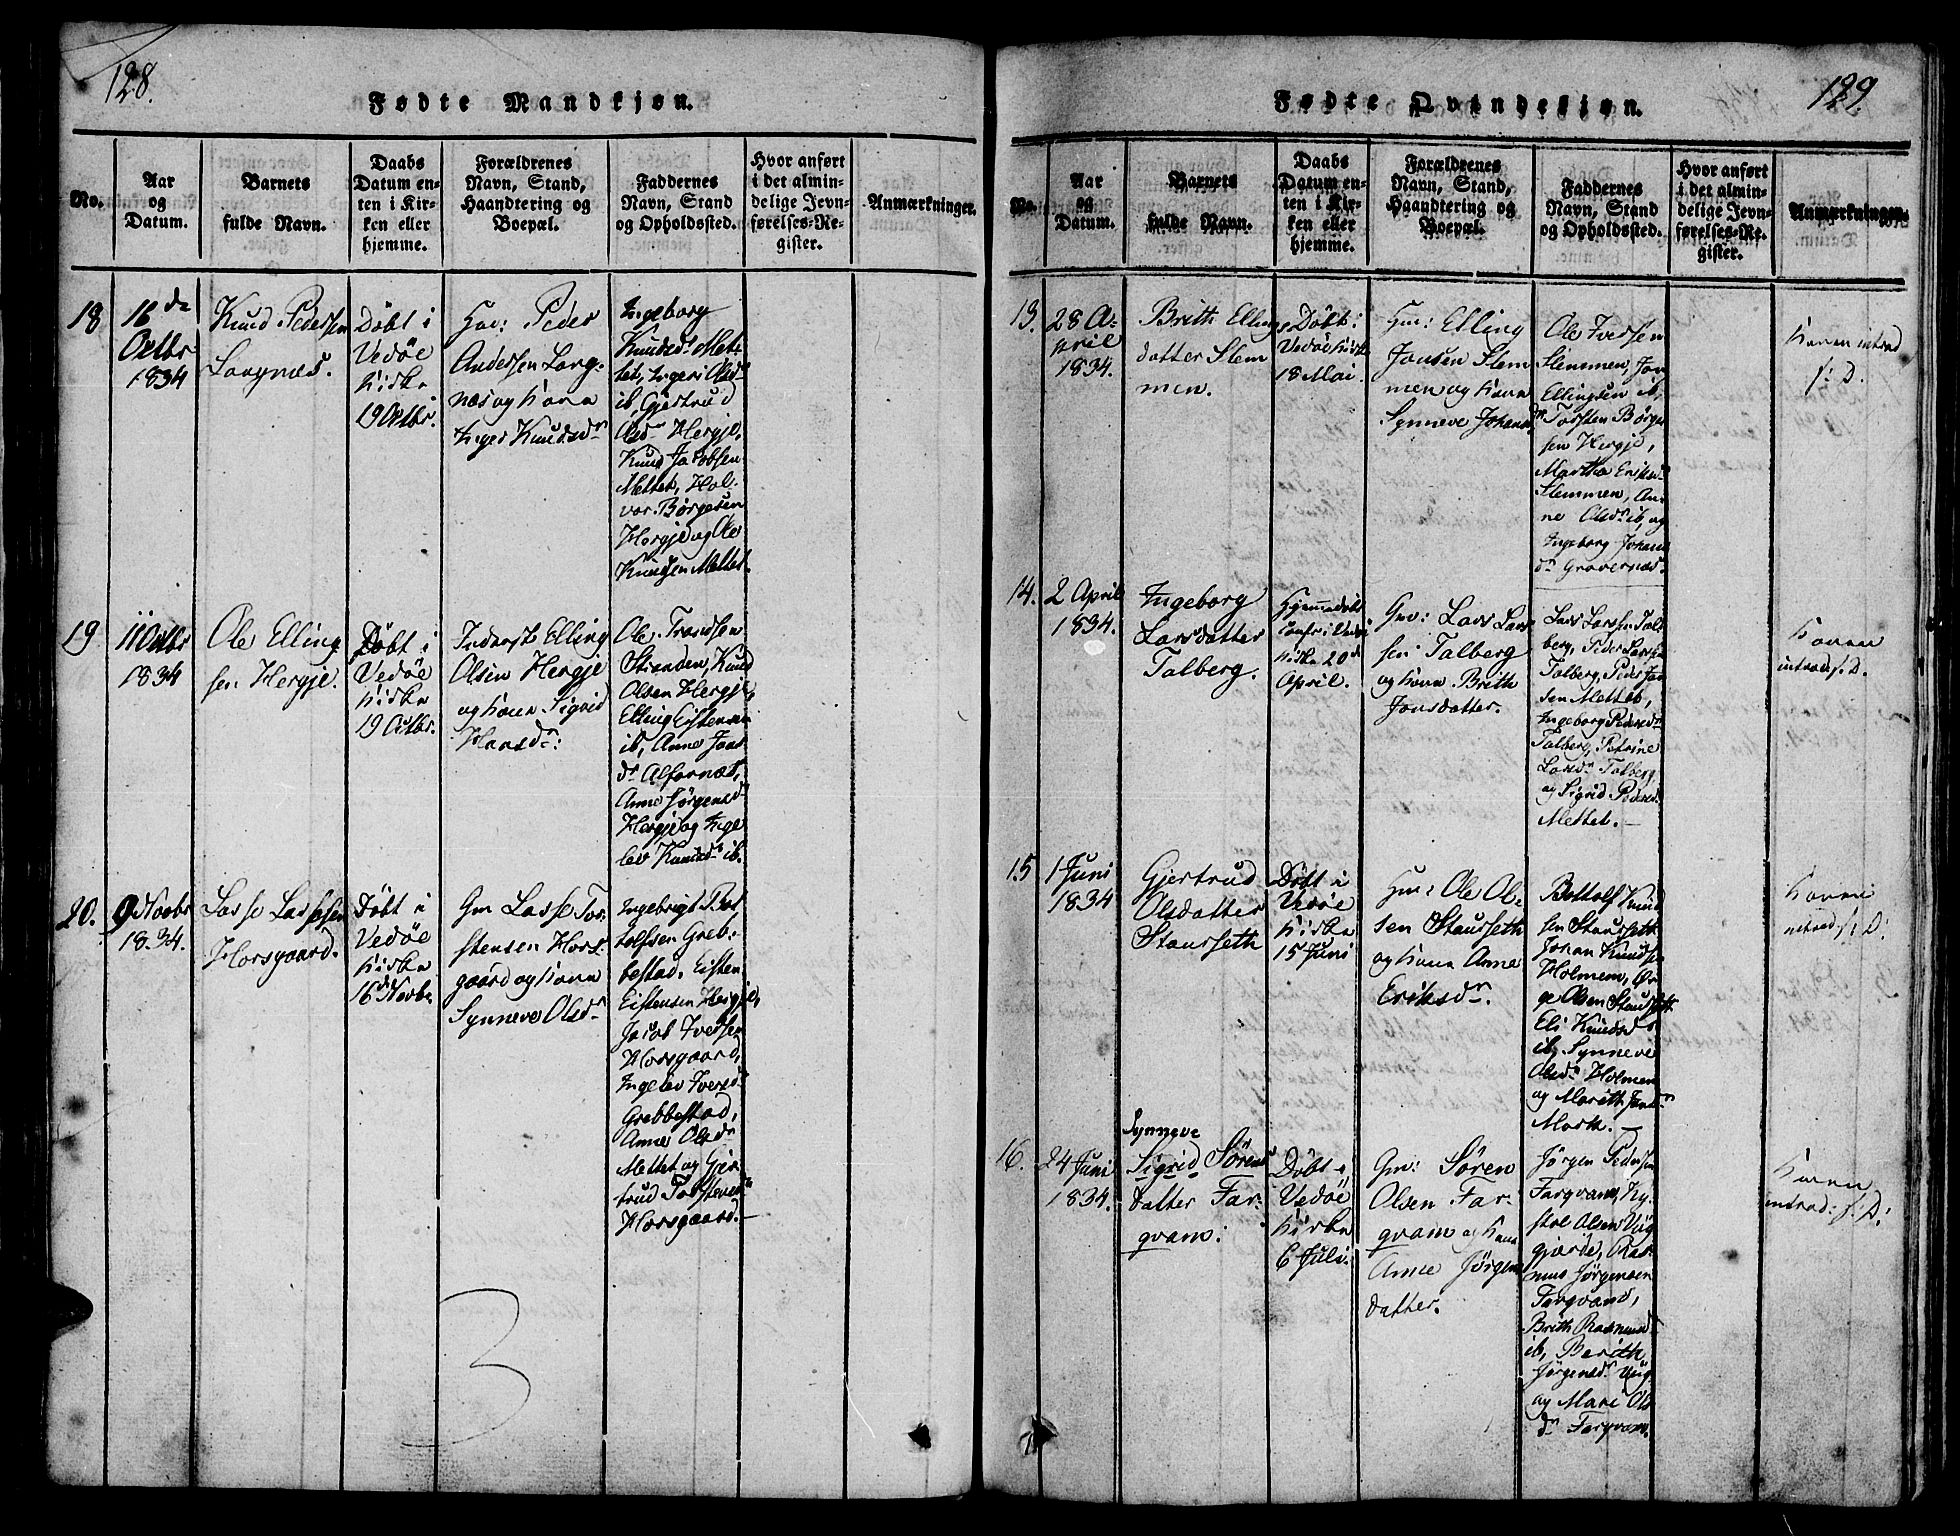 128.
Fødte Mandkjøn.
No.
Aar
og
Datum.
Barnets
fulde Navn.
Daabs
Datum en-
ten i Kir-
ken eller
hjemme.
Forældrenes
Navn, Stand,
Haandtering og
Boepæl.
Faddernes
Navn, Stand
og Opholdssted.
Hvor anført
i det almin-
delige Jevn-
førelses-Re-
gister.
Anmærkninger.
18
16de
Octbr
1834
Knud Pedersen
Langnæs.
Döbt i
Vedöe
Kirke
19 Octbr.
Gm: Peder
Andersen Lang-
næs og Kona
Inger Knudsdr
Ingeborg
Knudsdr Met-
tet, Ingeri Olsdr
ib, Gjertrud
Olsdr Hergje,
Knud Jacobsen
Mettet, Hal-
vor Börgesen
Hergje og Ole
Knudsen Mettet.
19
11 Octbr
1834
Ole Elling
sen Hergje.
Döbt i
Vedöe
Kirke
19 Octbr.
Inderst Elling
Olsen Hergje
og Kona Sigrid
Hansdr:
Ole Trondsen
Stranden, Knud
Olsen Hergje,
Elling Eistensen
ib, Anne Jons
dr Alfarnæs,
Anne Jörgensdr
Hergje og Inge
lev Knudsdr ib.
20.
9 Novbr
1834.
Lasse Lassesen
Horsgaard.
Döbt i
Vedöe
Kirke
16 Novbr
Gm Lasse Tor
stensen Hors-
gaard og Kona
Synneve Olsdr
Ingebrigt Bot
tolfsen Greb-
bestad, Eisten
Eistensen Hergje,
Jacob Iversen
Horsgaard,
Ingelev Iversdr
Grebbestad,
Anne Olsdr
Mettet og Gjer
trud Torstensdr
Horsgaard.
3
129.
Fødte Qvindekjøn.
No.
Aar
og
Datum.
Barnets
fulde Navn.
Daabs
Datum en-
ten i Kir-
ken eller
hjemme.
Forældrenes
Navn, Stand,
Haandtering og
Boepæl.
Faddernes
Navn, Stand
og Opholdssted.
Hvor anført
i det almin-
delige Jevn-
førelses-Re-
gister.
Anmærkninger.
13.
28 A-
pril
1834.
Brith Ellings
datter Slem
men.
Döbt i
Vedöe Kirke
18 Mai.
Gm: Elling
Jonsen Slem
men og Kona
Synneve Johansdr
Ole Iversen
Slemmen, Jon
Ellingsen ib,
Torsten Börge
sen Hergje,
Martha Eriksdr
Slemmen, An-
ne Olsdr ib, og
Ingeborg Johans
dr Gravernæs.
Konen introd
f: D.
14.
2 April
1834.
Ingeborg
Larsdatter
Talberg.
Hjemmedöbt
confr: i Vedöe
Kirke 20de
April.
Gm: Lars Lars
sen Talberg
og Kona Brith
Jonsdatter.
Lars Larssen Tal
berg, Peder Larssen
Talberg, Peder Jon
sen Mettet,
Ingeborg Pedersdr
Talberg, Petrine
Larsdr Talberg
og Sigrid Pedersdr
Mettet.
Konen
introd f: D.
15.
1 Juni
1834
Gjertrud
Olsdatter
Staurseth
Döbt i
Vedöe
Kirke
15 Juni
Gm: Ole Ol-
sen Staurseth
og Kona Anne
Eriksdr.
Bottolf Knud
sen Staurseth
Johan Knudsen
Holmem,
Olsen Staurseth
Eli Knudsdr
ib, Synneve
Olsdr Holmem
og Marith Jonsdr
Mork.
Konen
introd f: D.
16.
24 Juni
1834.
Synneve
Sigrid Sörens
datter Far-
qvam.
Döbt i
Vedöe
Kirke
6 Juli
Gm: Sören
Olsen Far-
qvam og Kona
Anne Jörgens
datter.
Jörgen Pedersen
Farqvam,
Olsen
Ras-
mus Jörgensen
Farqvam,
Brith Rasmusdr
ib, Berith
Jörgensdr
og Mari Ols
dr Farqvam.
Konen
introd: f: D: